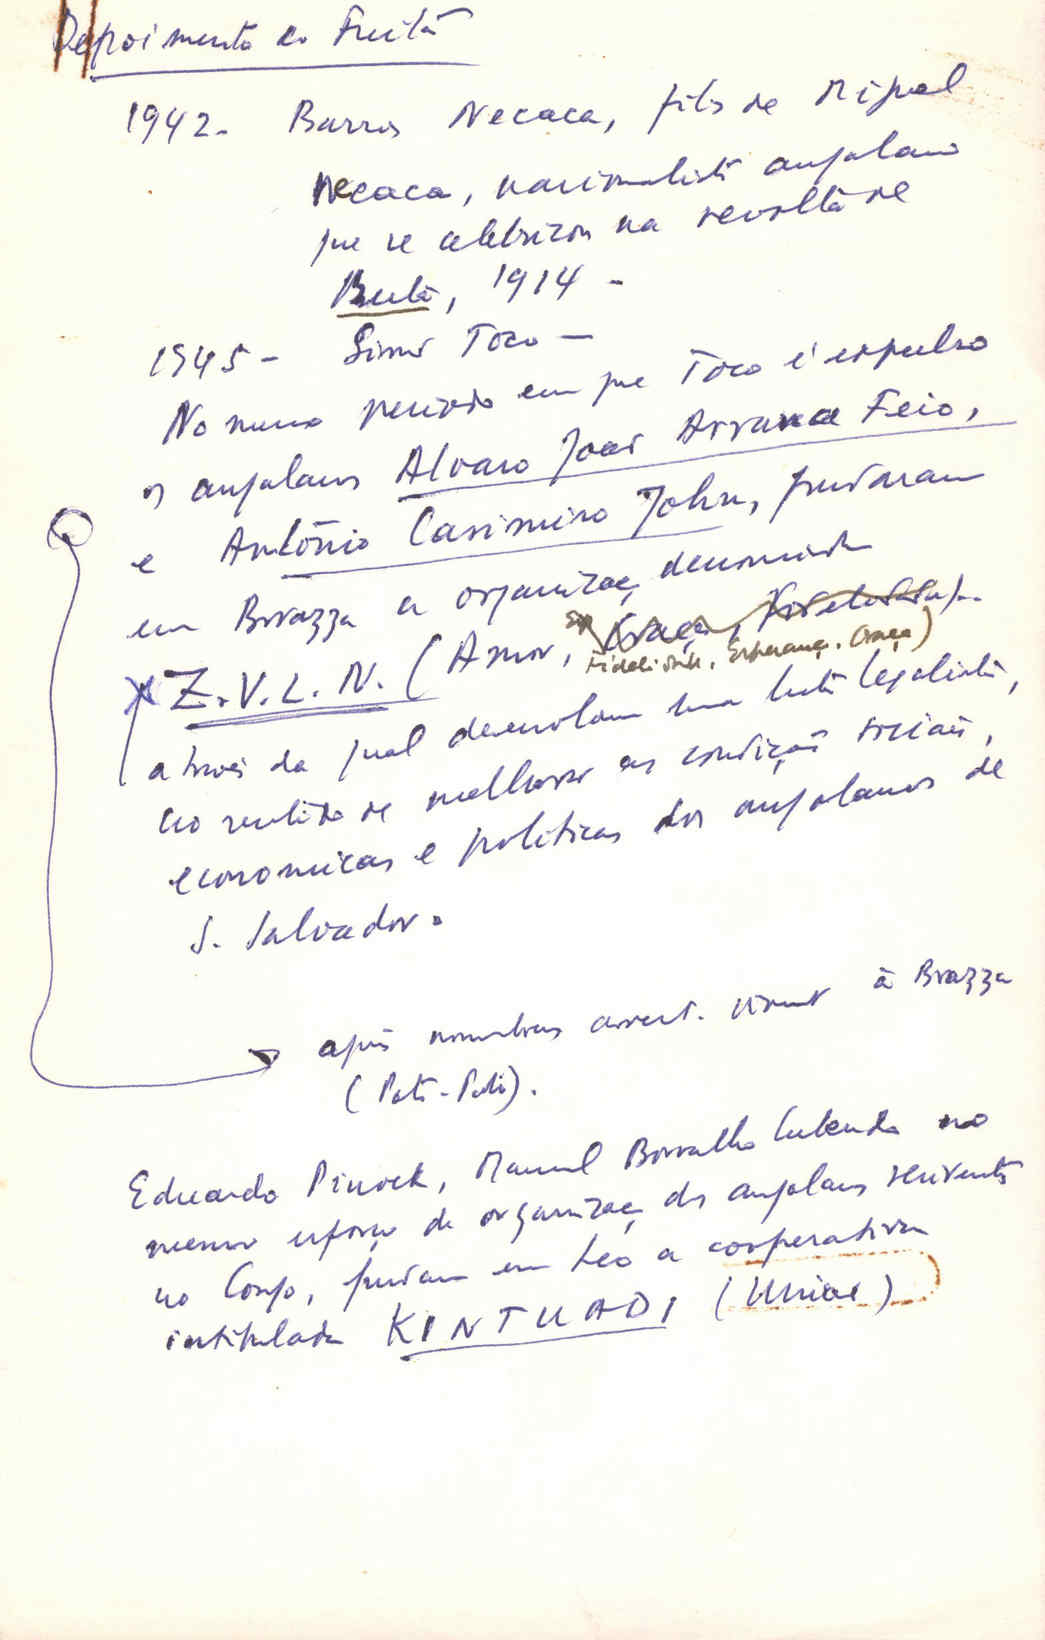 Depoimento do Freitã
1942 - Barros Necaca, filho de Miguel
Necaca, nacionalista angolano
que se celebrizou na revolta de
Buta, 1914 -
1945 - Simão Toco -
No mesmo período em que Toco é expulso
os angolanos Alvaro João Arranca Feio,
e António Casimiro John, fundaram
em Brazza a organizaç. denominada
Z.V.L.N. (Amor, Graça, Fidelidade)..
Fidelidade, Esperança, Graça)
através da qual desenvolvem uma luta legalista,
no sentido de melhorar as condições sociais,
economicas e politicas dos angolanos de
S. Salvador.
após nombreux arrest. vient à Brazza
(Poto-Poto).
Eduardo Pinock, Manuel Borralho Lubendo no
mesmo esforço de organizaç. dos angolanos
no Congo, fundam em Leo a cooperativa
intitulada KINTUADI (União)